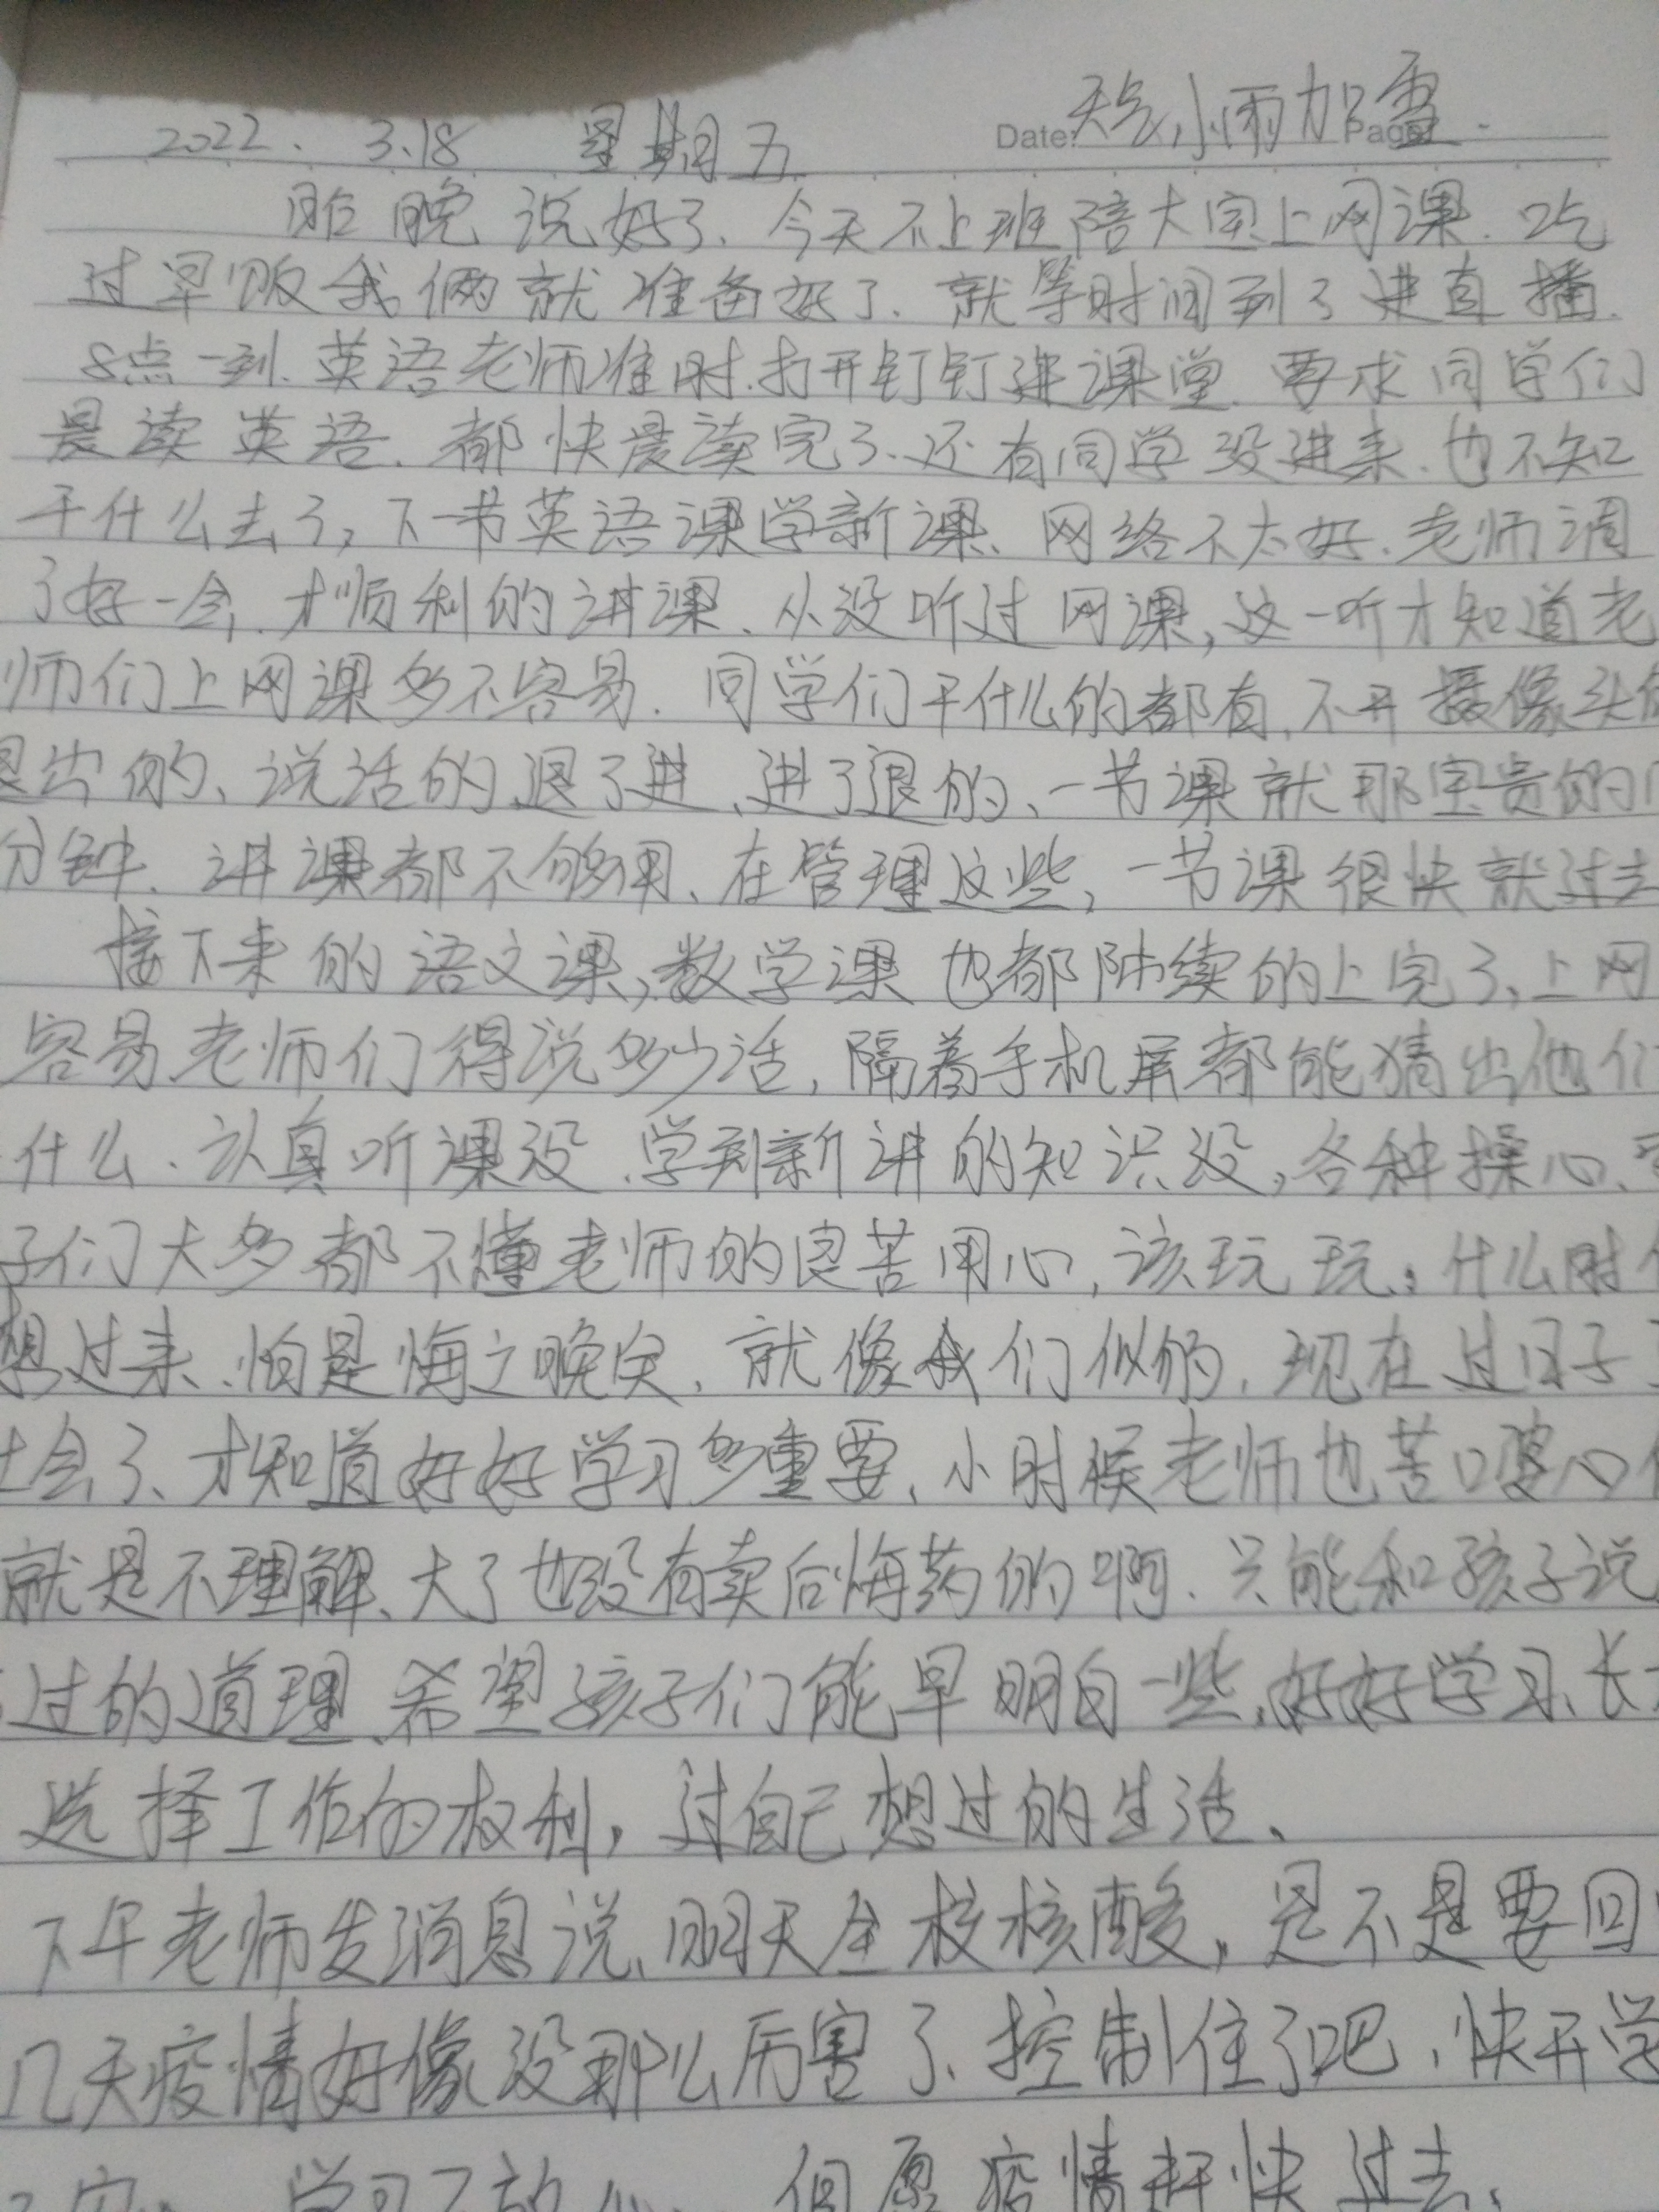 2022. 3.18 星期五 Date: 天气，小雨加雪. Page:
昨晚说好了、今天不上班陪大宝上网课. 吃
过早饭我俩就准备好了、就等时间到了进直播.
8点一到、英语老师准时、打开钉钉进课堂、要求同学们
晨读英语、都快晨读完了、还有同学没进来、也不知
干什么去了，下一节英语课学新课、网络不太好、老师调
了好一会，才顺利的讲课、从没听过网课，这一听才知道老
师们上网课多不容易. 同学们干什么的都有、不开摄像头
出的、说话的、退了进、进了退的、一节课就那宝贵的
分钟、讲课都不够用、在管理这些，一节课很快就过去
接下来的语文课，数学课也都陆续的上完了，上网
容易老师们得说多少话，隔着手机屏都能猜出他们
什么、认真听课没、学到新讲的知识没，各种操心、
子们大多都不懂老师的良苦用心，该玩玩，什么时
想过来、怕是悔之晚矣、就像我们似的、现在过日子
会了、才知道好好学习多重要、小时候老师也苦口婆心
就是不理解、大了也没有卖后悔药的啊、只能和孩子说
过的道理、希望孩子们能早明白一些、好好学习、长
选择工作的权利，过自己想过的生活、
下午老师发消息说、明天全校核酸，是不是要回
几天疫情好像没那么厉害了、控制住了吧、快开学
学习 放心 但愿疫情赶快过去、